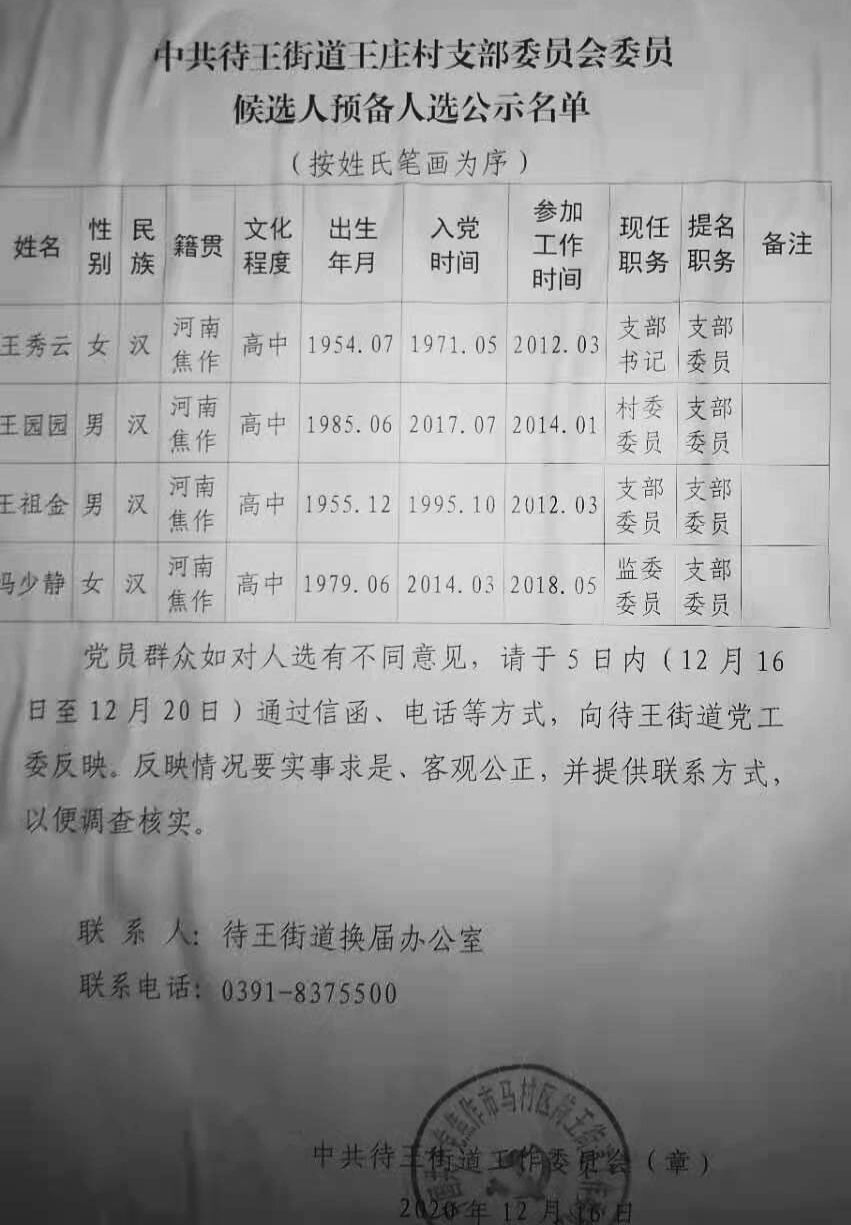 中共待王街道王庄村支部委员会委员
候选人预备人选公示名单
（按姓氏笔画为序）
姓名 性别 民族 籍贯 文化程度 出生年月 入党时间 参加工作时间 现任职务 提名职务 备注
王秀云 女 汉 河南焦作 高中 1954.07 1971.05 2012.03 支部书记 支部委员
王园园 男 汉 河南焦作 高中 1985.06 2017.07 2014.01 村委委员 支部委员
王祖金 男 汉 河南焦作 高中 1955.12 1995.10 2012.03 支部委员 支部委员
冯少静 女 汉 河南焦作 高中 1979.06 2014.03 2018.05 监委委员 支部委员
党员群众如对人选有不同意见，请于5日内（12月16
日至12月20日）通过信函、电话等方式，向待王街道党工
委反映。反映情况要实事求是、客观公正，并提供联系方式，
以便调查核实。
联 系 人：待王街道换届办公室
联系电话：0391-8375500
焦作市马村区待王街
中共待王街道工作委员会（章）
2020年12月16日